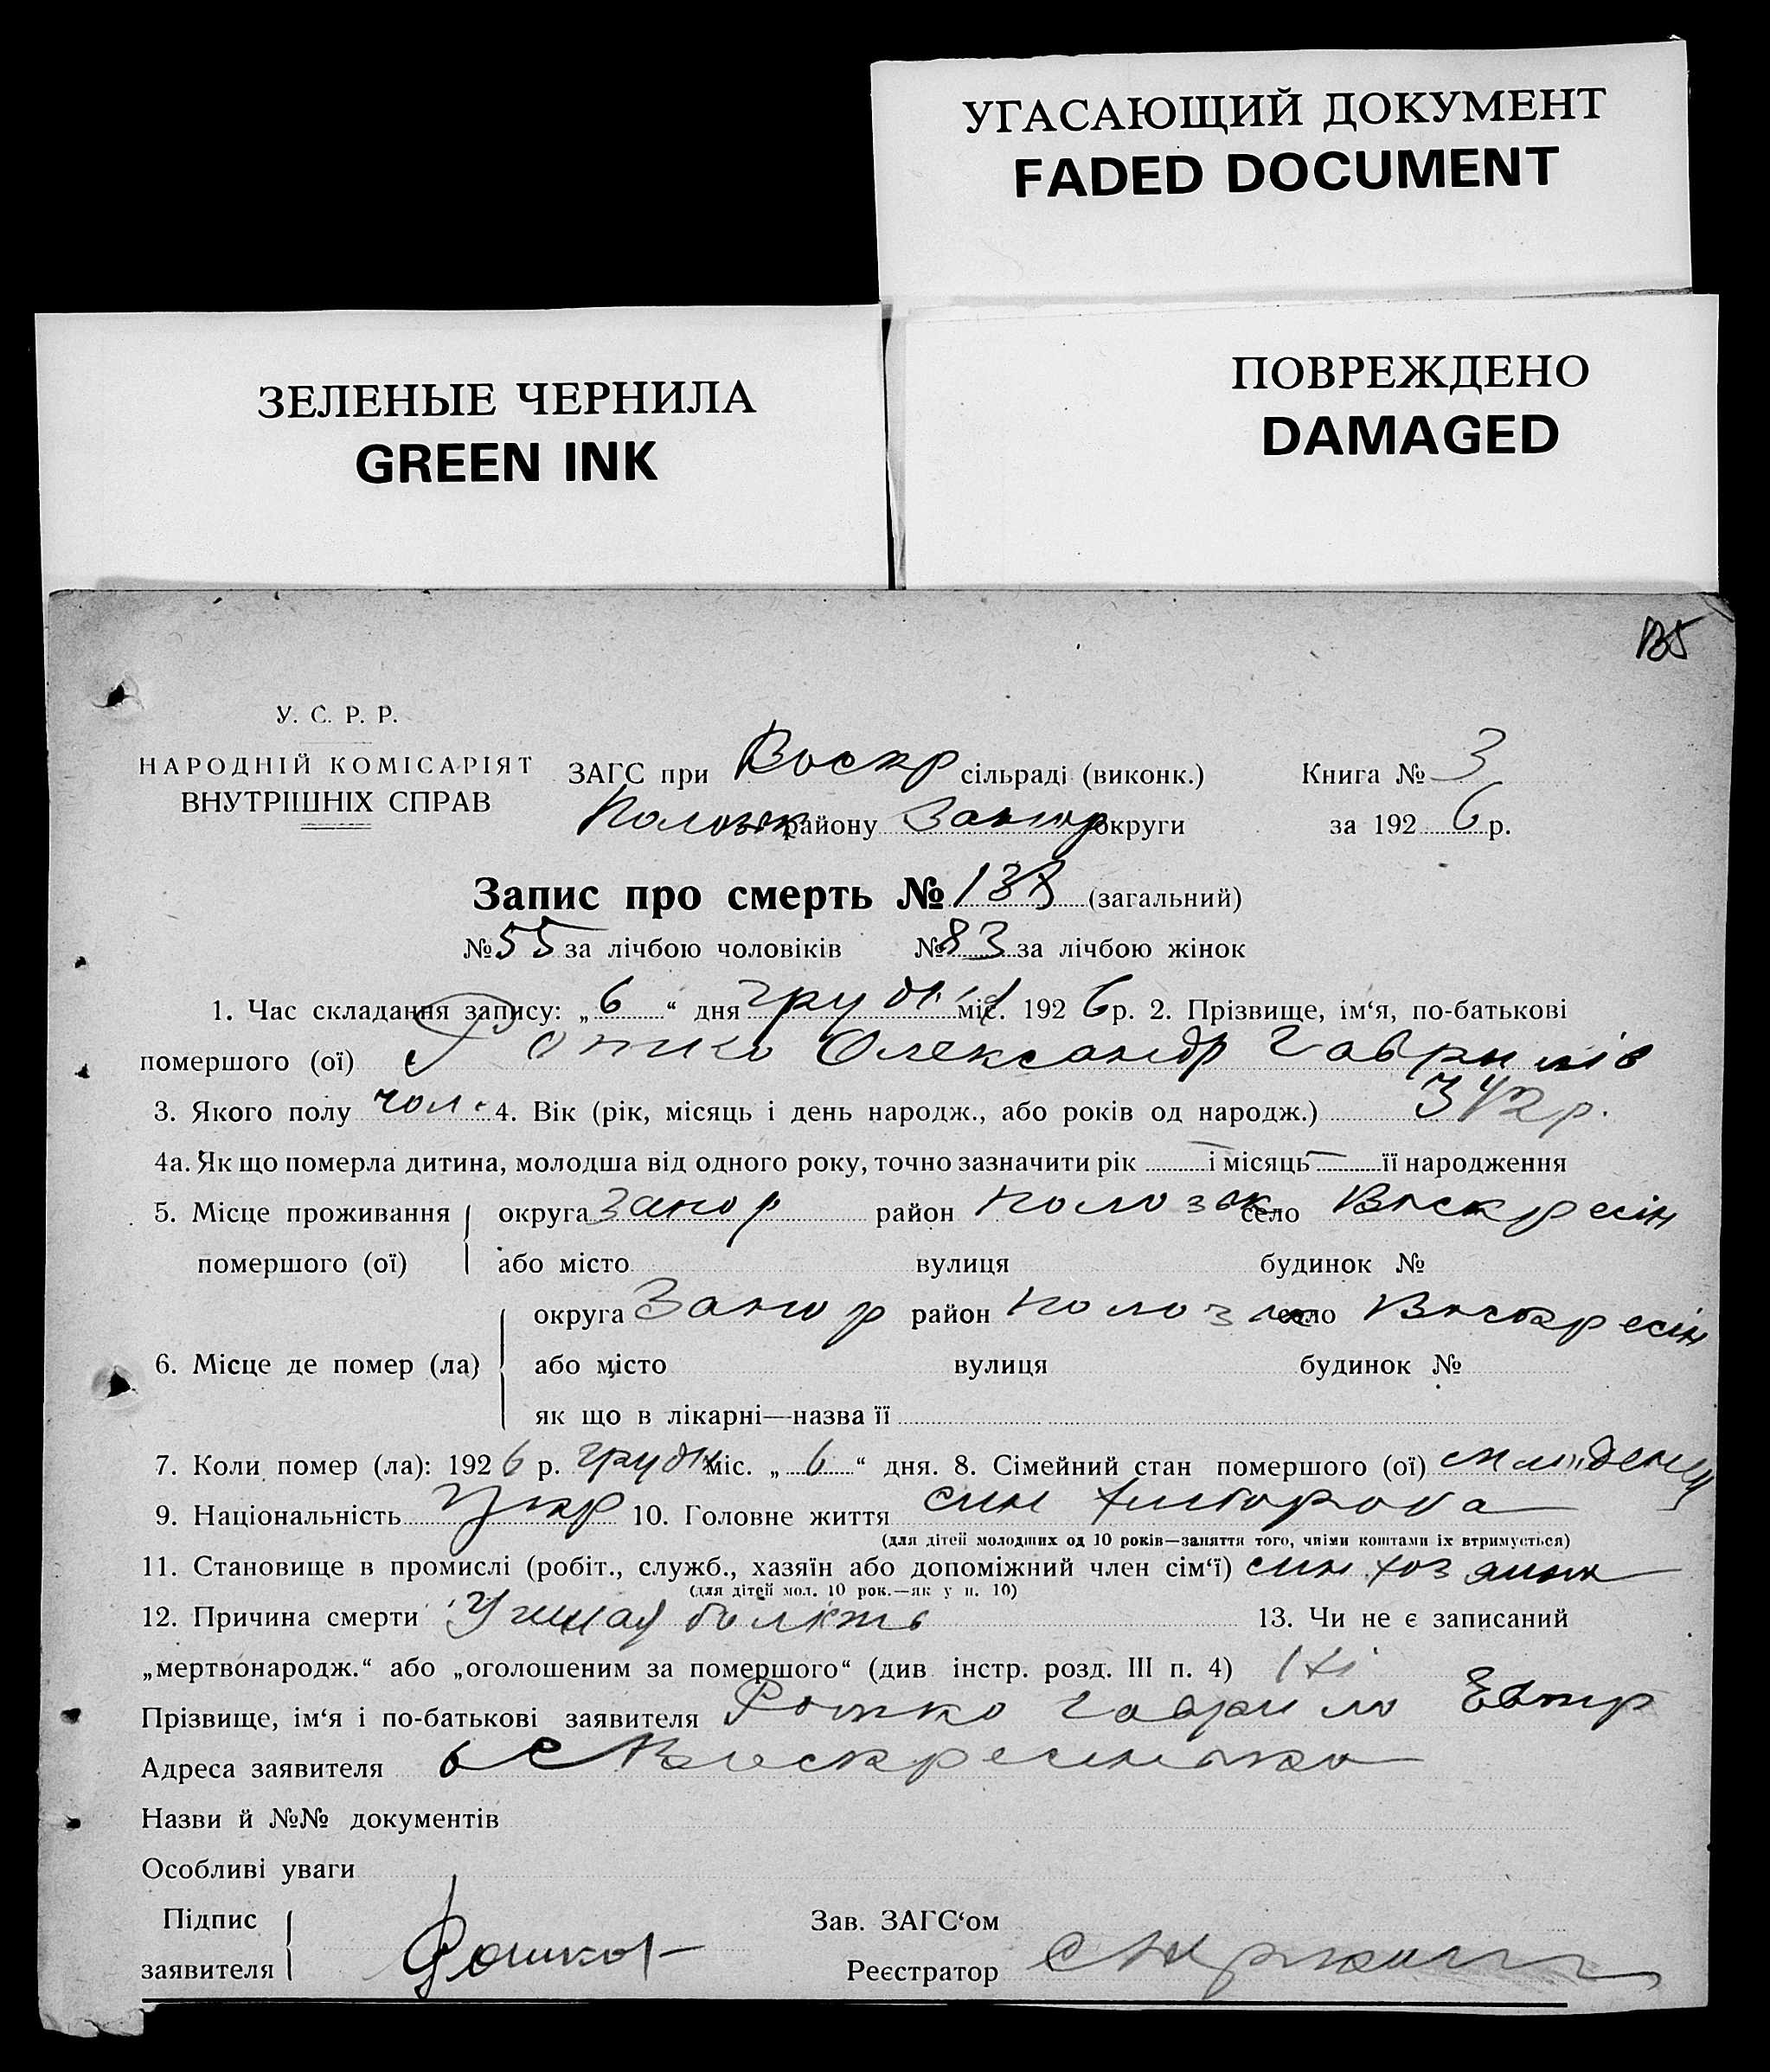 УГАСАЮЩИЙ ДОКУМЕНТ
FADED DOCUMENT
ЗЕЛЕНЫЕ ЧЕРНИЛА
GREEN INK
ПОВРЕЖДЕНО
DAMAGED
135
У. С. Р. Р.
НАРОДНІЙ КОМІСАРІЯТ
ВНУТРІШНІХ СПРАВ
ЗАГС при Воскр сільраді (виконк.) Книга № 3
району Запор округи за 192 6 р.
Запис про смерть № 138 (загальний)
№ 55 за лічбою чоловіків № 83 за лічбою жінок
1. Час складання запису: „ 6 “ дня грудня міс. 192 6 р. 2. Прізвище, ім‘я, по-батькові
помершого (ої) Рошко Олександр Гаврилів
3. Якого полу чол. 4. Вік (рік, місяць і день народж., або років од народж.) 3 1/2 р.
4а. Як що померла дитина, молодша від одного року, точно зазначити рік — і місяць — її народження
5. Місце проживання округа Запор район Пологськ село Воскресін
помершого (ої) або місто вулиця будинок №
округа Запор район село Воскресін
6. Місце де помер (ла) або місто вулиця будинок №
як що в лікарні—назва її
7. Коли помер (ла): 192 6 р. грудн міс. „ 6 “ дня. 8. Сімейний стан помершого (ої)
9. Національність Укр 10. Головне життя син хлібороба
(для дітей молодших од 10 років—заняття того, чиїми коштами їх втримується)
11. Становище в промислі (робіт., служб., хазяїн або допоміжний член сім‘ї) син хозяина
(для дітей мол. 10 рок.—як у п. 10)
12. Причина смерти 13. Чи не є записаний
„мертвонародж.“ або „оголошеним за помершого“ (див інстр. розд. III п. 4) Ні
Прізвище, ім‘я і по-батькові заявителя Рошко Гаврило
Адреса заявителя с Воскресенька
Назви й №№ документів
Особливі уваги
Підпис Зав. ЗАГС‘ом
заявителя Рошко Реєстратор